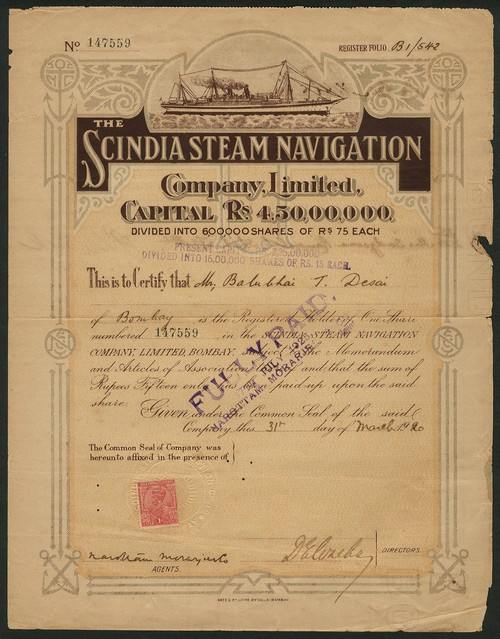 No 147559
REGISTER FOLIO B1/542
THE
SCINDIA STEAM NAVIGATION
Company, Limited,
CAPITAL RS 4,50,00,000,
DIVIDED INTO 600000 SHARES OF RS 75 EACH
PRESENT CAPITAL
DIVIDED INTO 15,00,000 SHARES OF RS. 15 EACH.
This is to Certify that Mr. Balubhai T. Desai
of Bombay is the Registered Holder of One Share
numbered 147559 in the SCINDIA STEAM NAVIGATION
COMPANY, LIMITED, BOMBAY, the Memorandum
and Articles of Association and that the sum of
Rupees Fifteen only has paid up upon the said
share.
FULLY PAID.
NAROTTAM MORARJEE
Given under the Common Seal of the said
Company this 31st day of March 1920
The Common Seal of Company was
hereunto affixed in the presence of
Narottam Morarjee & Co
AGENTS.
DIRECTORS.